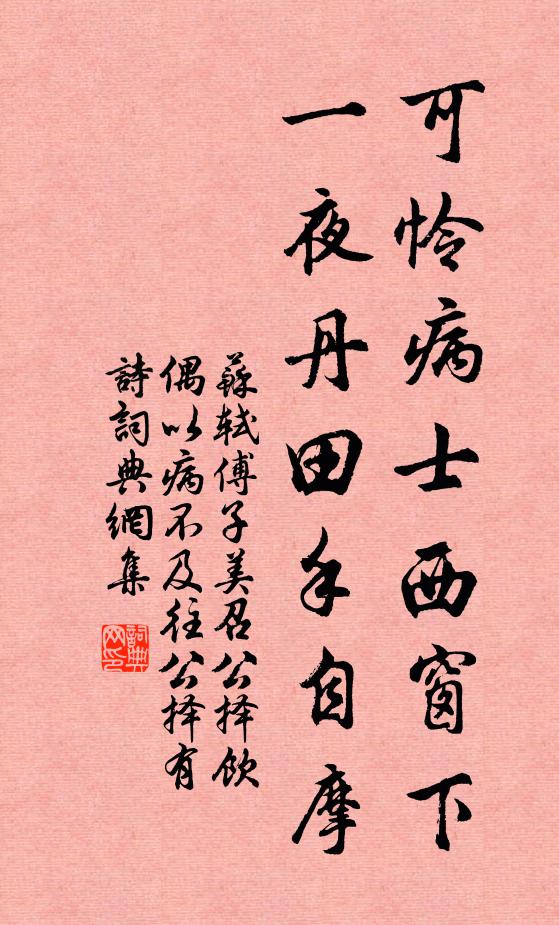 可怜病士西窗下
一夜丹田手自摩
蘇轼傅子美召公择飲
偶以病不及往公择有
詩詞典網集
詞典
网印